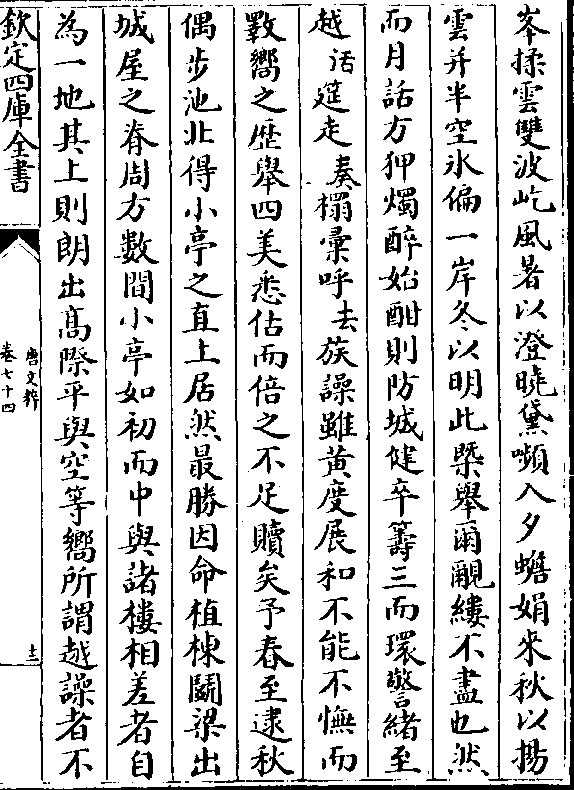 峯揉雲雙波屹風暑以澄曉黛嚬入夕蟾娟来秋以揚
雲并半空氷偏一岸冬以明此槩舉爾覼縷不盡也然
而月話方狎燭醉始酣則防城健卒籌三而環警緒至
越活筵走奏榻彚呼去族譟雖黄度展和不能不憮而
斁嚮之歴舉四美悉估而倍之不足贖矣予春至逮秋
偶步池北得小亭之直上居然最勝因命植棟鬭梁出
城屋之脊周方數間小亭如初而中與諸樓相差者自
為一地其上則朗出髙際平與空等嚮所謂越譟者不
欽定四庫全書
唐文粹
卷七十四
十三